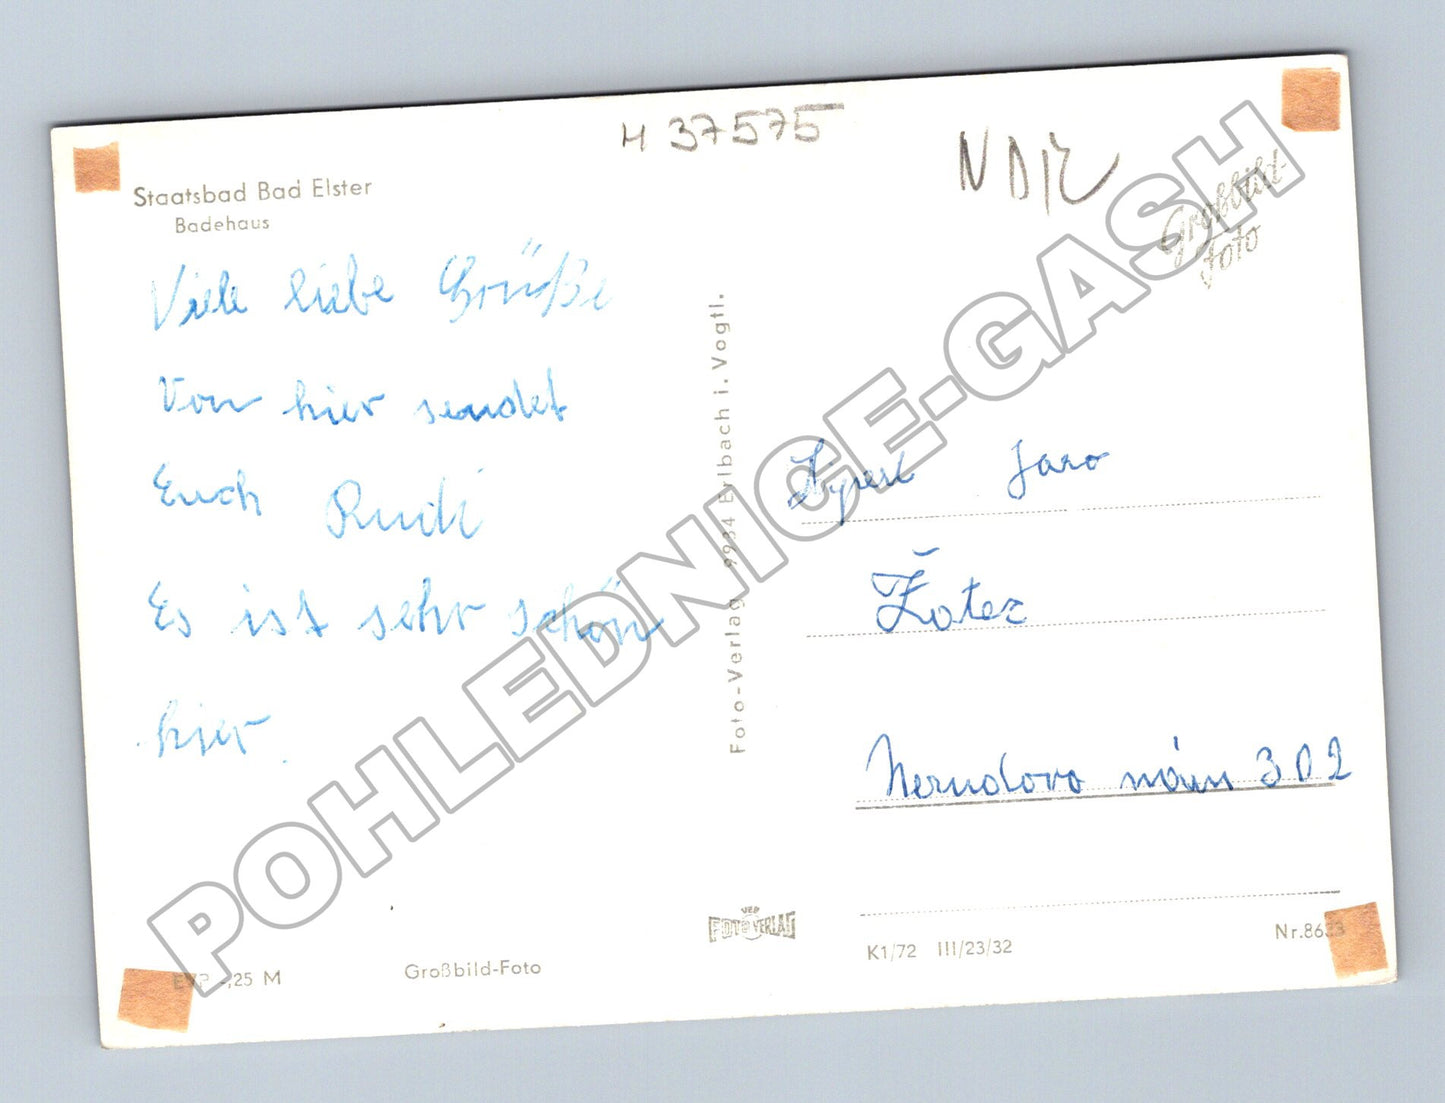 H 37575
NDR
Großbild-
foto
Staatsbad Bad Elster
Badehaus
Viele liebe Grüße
Von hier sendet
Euch Rudi
Es ist sehr schön
hier.
Foto-Verlag 9934 Erlbach i. Vogtl.
Jaro
Žatec
Nerudovo nám 302
VEB
FOTO VERLAG
EVP -,25 M
Großbild-Foto
K1/72 III/23/32
Nr.8633
POHLEDNICE-GASH